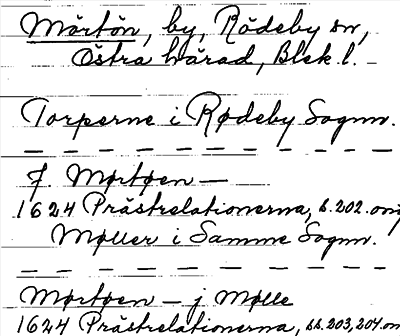 Mörtön, by, Rödeby sn,
Östra härad, Blek. l. –
Torperne i Rødeby Sognn.
J. Mørtøen —
1624 Prästrelationerna, s. 202.
Møller i Samme Sognn.
Mørtøen – j Mølle
1624 Prästrelationerna, ss. 203, 204.